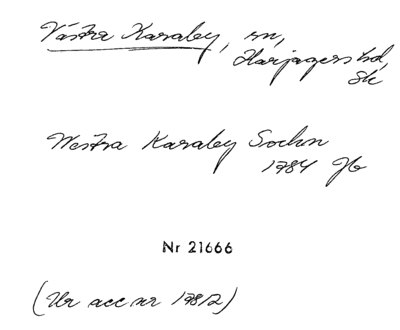 Västra Karaby, sn,
Harjagers hd,
Sk
Westra Karaby Sochn
1784 Jb
Nr 21666
(Ur acc nr 178/2)